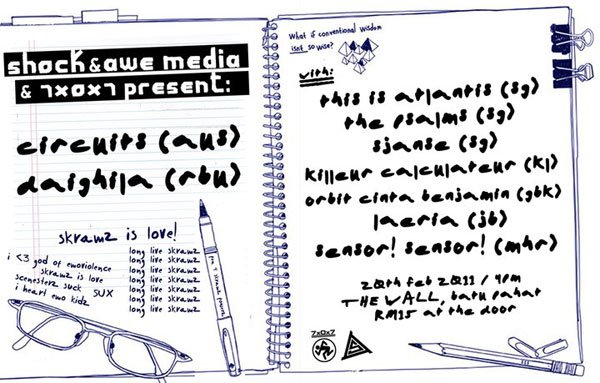 shock & awe media
& 7x0x7 present:
circuits (aus)
daighila (rbu)
skramz is love!
i <3 god of emoviolence
skramz is love
scenesterz suck SUX
i heart emo kidz
long live skramz
long live skramz
long live skramz
long live skramz
long live skramz
long live skramz
long live skramz
What if conventional wisdom
isnt so wise?
with:
this is atlantis (sg)
the psalms (sg)
sjanse (sg)
killeur calculateur (kl)
orbit cinta benjamin (gbk)
laeria (jb)
sensor! sensor! (mhr)
20th feb 2011 / 4pm
THE WALL, batu pahat
RM15 at the door
7x0x7